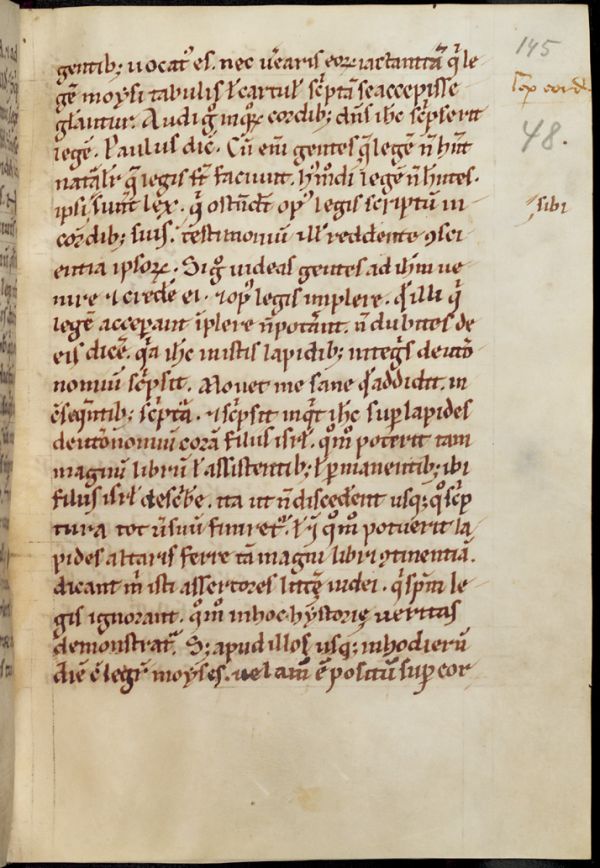 145
gentib; uocat᷒ es. nec uerearis eoꝝ iactantiā q̇ le-
gē moysi tabulis ł cartuł sc̄ptā se accepisse
gl̄antur. Audi g̊ inq̇ꝝ cordib; dn̄s ih̄c sc̄pserit
legē. Paulus dic̄. Cū eni᷒ gentes q̄ legē n̄ hn̄t
natałr q̄ legis st̄ faciunt. hi᷒modi legē n̄ hn̄tes.
ipsi sunt lex. q̇ ostn̄dt̄ op᷒ legis scriptū in
cordib; suis. testimoniū ill᷒ reddente ꝯsci-
entia ipsoꝝ. Si g̊ uideas gentes ad ih̄m ue-
nire ⁊ credē ei. ⁊ op᷒ legis implere. qđ illi q̇
legē accepant īplere n̄ potant. n̄ dubites de
eis dicē. q̇a ih̄c in istis lapidib; integ̊s deuto-
nomiū sc̄psit. Mouet me sane qđ addidit. in
c̄seq̄ntib; sc̄ptā. ⁊ sc̄psit inq̇t ih̄c sup lapides
deutonomiū corā filiis isrł. qm̊o poterit tam
magnū librū ł assistentib; ł pmanentib; ibi
filiis isrł desc̄be. ita ut n̄ discedent usq; quo sc̄p-
tura tot ūsuū finiret᷒. ł qm̊o potuerit la-
pides altaris ferre tā magni libri ꝯtinentiā.
dicant m̄ isti assertores littę iudei. q̇ spm̄ le-
gis ignorant. qm̊o in hoc hystorię ueritas
demonstrat᷒. S; apud illos usq; in hodiernū
diē c̄ legit᷒ moyses. uelam̄ ē positū sup cor-
48.
sibi